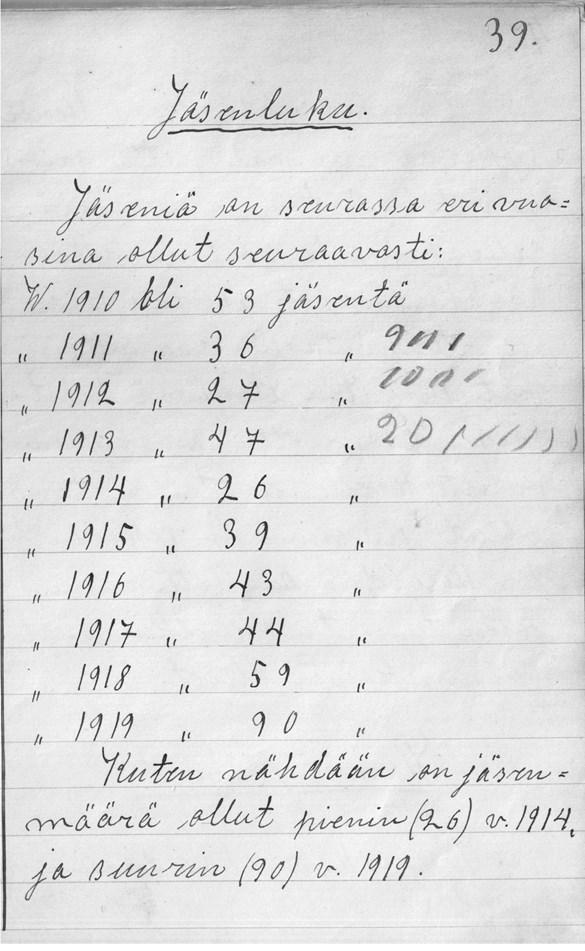 39.
Jäsenluku.
Jäseniä on seurassa eri vuo=
sina ollut seuraavasti:
W. 1910 oli 53 jäsentä
" 1911 " 36 " 9
" 1912 " 27 " 10
" 1913 " 47 " 20
" 1914 " 26 "
" 1915 " 39 "
" 1916 " 43 "
" 1917 " 44 "
" 1918 " 59 "
" 1919 " 90 "
Kuten nähdään on jäsen=
määrä ollut pienin (26) v. 1914,
ja suurin (90) v. 1919.